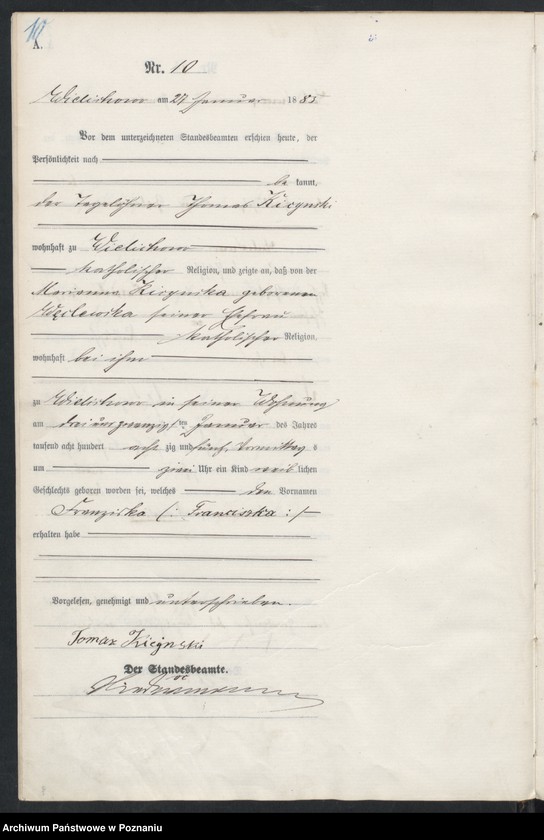 10
A.
Nr. 10
Wielichowo am 27 Januar 1885
Vor dem unterzeichneten Standesbeamten erschien heute, der
Persönlichkeit nach
be kannt,
der Tagelöhner Thomas Kicynski
wohnhaft zu Wielichowo
katholischer Religion, und zeigte an, daß von der
Marianna Kicynska geborenen
Węclewska seiner Ehefrau
katholischer Religion,
wohnhaft bei ihm
zu Wielichowo in seiner Wohnung
am drei und zwanzigsten Januar des Jahres
tausend acht hundert acht zig und fünf Vormittag s
um zwei Uhr ein Kind weib lichen
Geschlechts geboren worden sei, welches den Vornamen
Franziska (: Franciszka :)
erhalten habe
Vorgelesen, genehmigt und unterschrieben.
Tomax Kicynski
Der Standesbeamte.
Archiwum Państwowe w Poznaniu